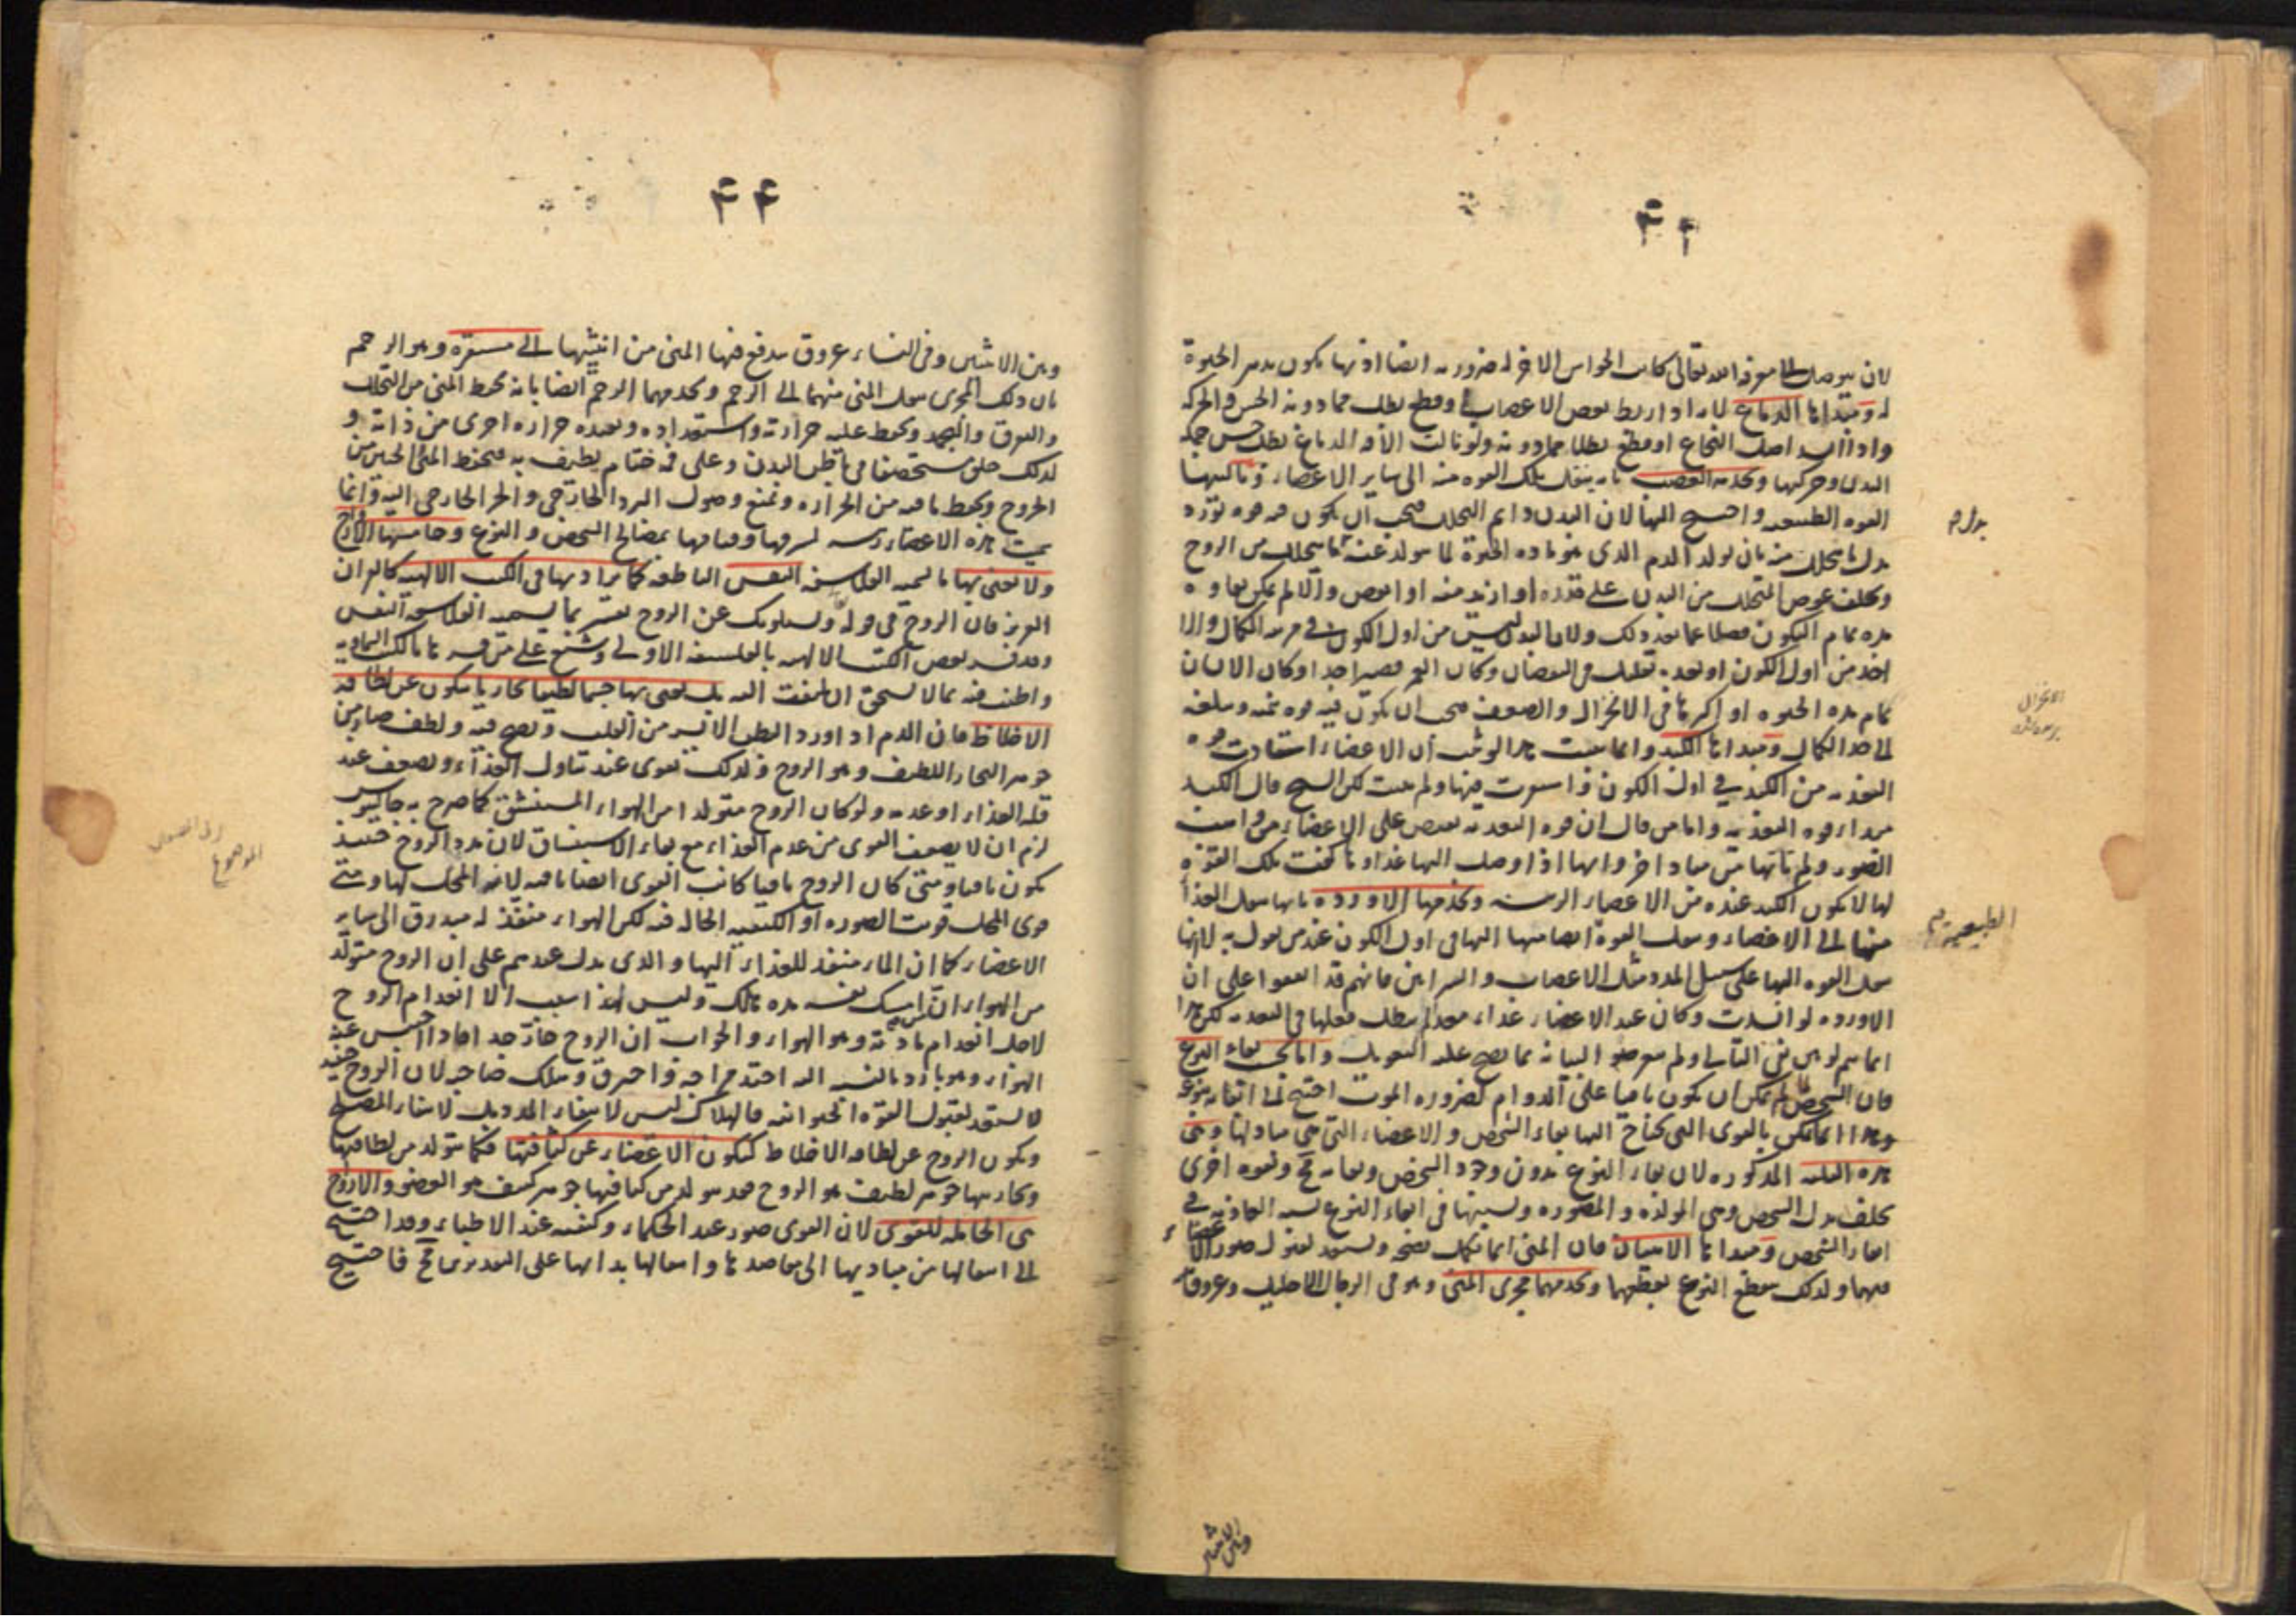 ۴۴
لان يتوصل الى معرفة الله تعالى كانت الحواس الاخر له ضرورية ايضا اذ بها يكون تدبير الحيوة
له ومبداها الدماغ لانه اذا ربط بعض الاعصاب او قطع بطل مما دونه الحس والحركة
اصل النخاع او قطع بطلا مما دونه ولو نالت الآفة الدماغ بطل حس جملة
البدن وحركتها وتخدمه العصب بانه ينقل تلك القوة منه الى ساير الاعضاء وثالثها
القوة الطبيعية واحتيج اليها لان البدن دايم التحلل فيجب ان يكون فيه قوة تورد
بدل ما يتحلل منه بان يولد الدم الذي هو مادة الحيوة لما يتولد عنه ما يتحلل من الروح
ويخلف عوض المتحلل من البدن على قدره او ازيد منه او انقص والا لم يمكن بقاوه
مدة تمام التكون فضلا عما بعد ذلك ولان البدن ليس من اول الكون في مرتبة الكمال والا
اخذ من اول الكون او بعده بقليل في النقصان وكان العمر قصيرا جدا او كان الانسان
تمام مدة الحيوة او اكثرها في الانخزال والضعف يجب ان يكون فيه قوة تنميه وتبلغه
الى حد الكمال ومبداها الكبد وانما يثبت هذا لو ثبت ان الاعضاء استفادت قوة
التغذية من الكبد في اول الكون ولم يثبت لكن الشيخ قال الكبد
مبداء قوة التغذية واما من قال ان قوة التغذية تفيض على الاعضاء من واهب
الصور ولم ياتها من مباد اخر وانها اذا وصل اليها غذاوها كفت تلك القوة
لها لا يكون الكبد عنده من الاعضاء الرئيسة وتخدمها الاوردة بانها تنقل الغذا
منها الى الاعضاء وتنقل القوة ايضا منها اليها في اول الكون عند من يقول به لا انها
تنقل القوة اليها على سبيل المدد مثل الاعصاب والشرايين فانهم قد اتفقوا على ان
الاوردة لو انسدت وكان عند الاعضاء غذاء معد لم يبطل فعلها في التغذية لكن هذا
انما يتم لو بين نفى التالى ولم يتعرضوا لبيانه بما يصح عليه التعويل واما بحسب بقاء النوع
فان الشخص لما لم يمكن ان يكون باقيا على الدوام لضرورة الموت احتيج الى ابقاء نوعه
وهذا انما يمكن بالقوى التى يحتاج اليها بقاء الشخص والاعضاء التى هى مبادلها وهى
هذه الثلثة المذكورة لان بقاء النوع بدون وجود الشخص وبقائه مح وبقوة اخرى
تخلف بدل الشخص وهى المولدة والمصورة ونسبتها فى ابقاء النوع نسبة الغاذية فى
ابقاء الشخص ومبداها الانثيان فان المنى انما يكمل نضجه ويستعد لقبول صور الاعضاء
فيهما ولذلك ينقطع النوع بقطعهما وتخدمهما مجرى المنى وهو فى الرجال الاحليل وعروق
بدل م
الطبيعية م
وبين الانثيين
۴۴
وبين الانثيين وفى النساء عروق يندفع فيها المنى من انثييها الى مستقره وهو الرحم
بان ذلك المجرى ينقل المنى منهما الى الرحم ويخدمهما الرحم ايضا بانه يحفظ المنى من التحلل
والتفرق والتجمد ويحفظ عليه حرارته واستعداده ويفيده حرارة اخرى من ذاته و
لذلك خلق مستحصفا فى باطن البدن وعلى فمه ختام يطيف به فيحفظ المنى والجنين من
الخروج ويحفظ ما فيه من الحرارة ويمنع وصول البرد الخارجى والحر الخارجى اليه وانما
سميت هذه الاعضاء رئيسة لشرفها وقيامها بمصالح الشخص والنوع وخامسها الارواح
ولا نعنى بها ما تسميه الفلاسفة النفس الناطقة كما يراد بها فى الكتب الالهية كالقران
العزيز فان الروح فى قوله ويسئلونك عن الروح تفسر بما يسميه الفلاسفة النفس
وقد فسر بعض الكتب الالهية بالفلسفة الاولى وشنع على من فسرها بالكتب السماوية
واطنب فيه بما لا يستحق ان يلتفت اليه بل نعنى بها جسما لطيفا بخاريا يتكون عن لطافة
الاخلاط فان الدم اذا ورد البطن الايسر من القلب ونضج فيه ولطف صار من
جوهر البخار اللطيف وهو الروح ولذلك تقوى عند تناول الغذاء وتضعف عند
قلة الغذاء او عدمه ولو كان الروح متولدا من الهواء المستنشق كما صرح به جالينوس
لزم ان لا يضعف القوى من عدم الغذاء مع بقاء الاستنشاق لان مدد الروح حينئذ
يكون باقيا ومتى كان الروح باقيا كانت القوى ايضا باقية لانه المحل لها ومتى
قوى المحل قويت الصورة او الكيفية الحالة فيه لكن الهواء منفذ له مبدرق الى ساير
الاعضاء كما ان الماء منفذ للغذاء اليها والذى يدل عندهم على ان الروح متولد
من الهواء ان من امسك نفسه مدة هلك وليس لهذا سبب الا انعدام الروح
لاجل انعدام مادته وهو الهواء والجواب ان الروح حار جدا فاذا احتبس عنه
الهواء وهو بارد بالنسبة اليه احتد مزاجه واحترق وهلك صاحبه لان الروح حينئذ
لا يستعد لقبول القوة الحيوانية فالهلاك ليس لانتفاء المدد بل لانتفاء المصلح
وتكون الروح عن لطافة الاخلاط كتكون الاعضاء عن كثافتها فكما يتولد من لطافتها
وبخاريتها جوهر لطيف هو الروح فقد يتولد من كثافتها جوهر كثيف هو العضو والارواح
هى الحاملة للقوى لان القوى صور عند الحكماء وكيفية عند الاطباء وقد احتيج
الى انتقالها من مباديها الى مقاصدها وانتقالها بذاتها على التقديرين مح فاحتيج
الموضوع